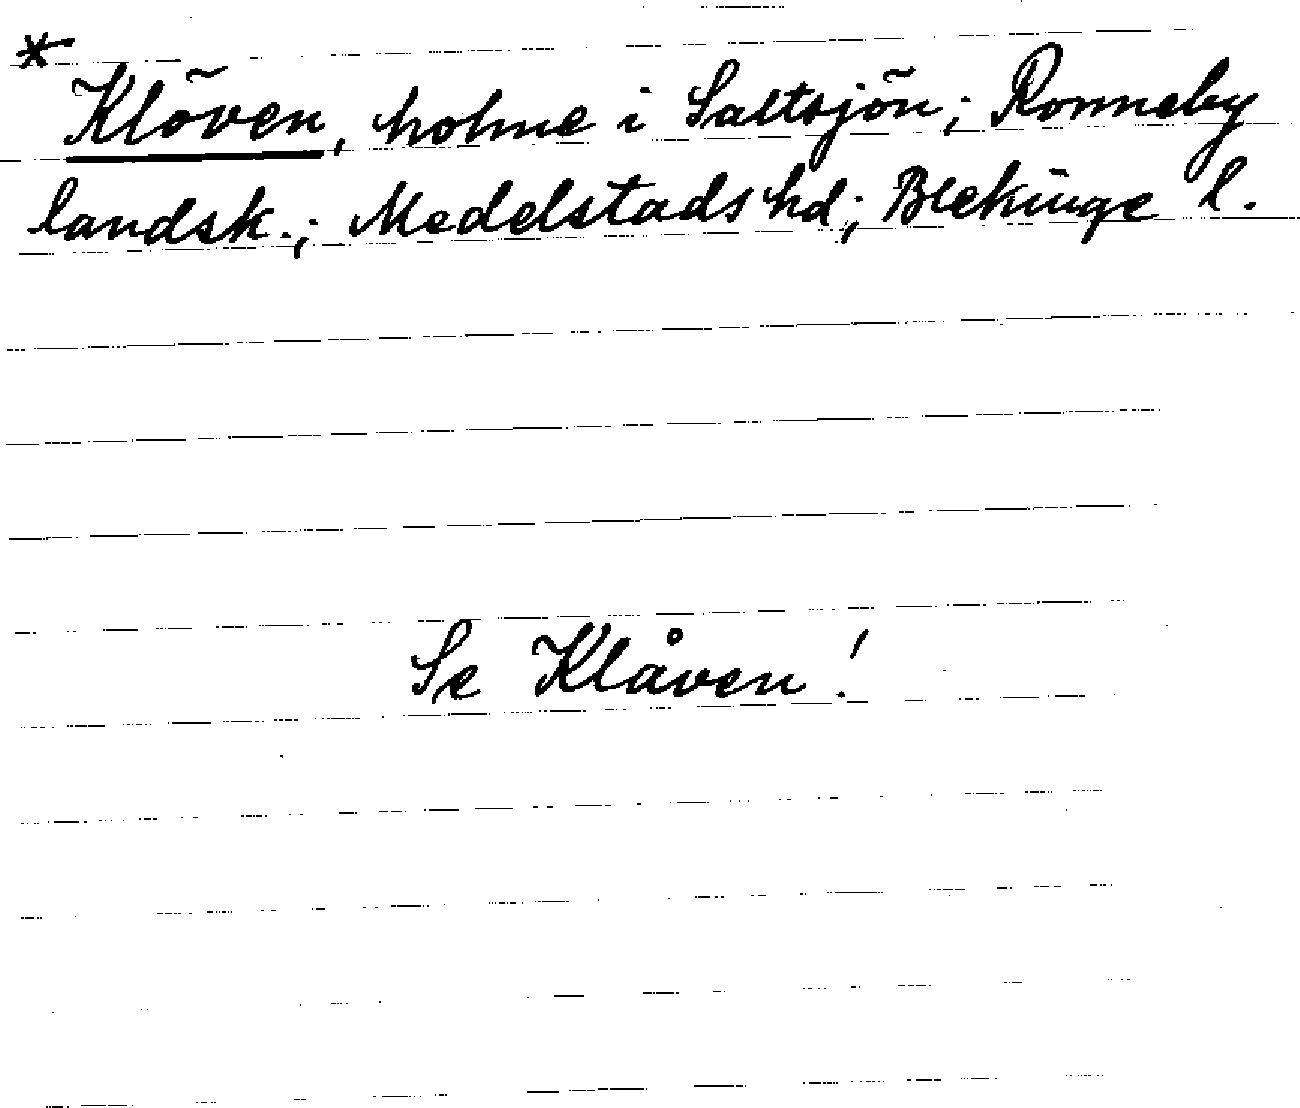 * Klöven, holme i Saltsjön; Ronneby
landsk.; Medelstads hd; Blekinge l.
Se Klåven!